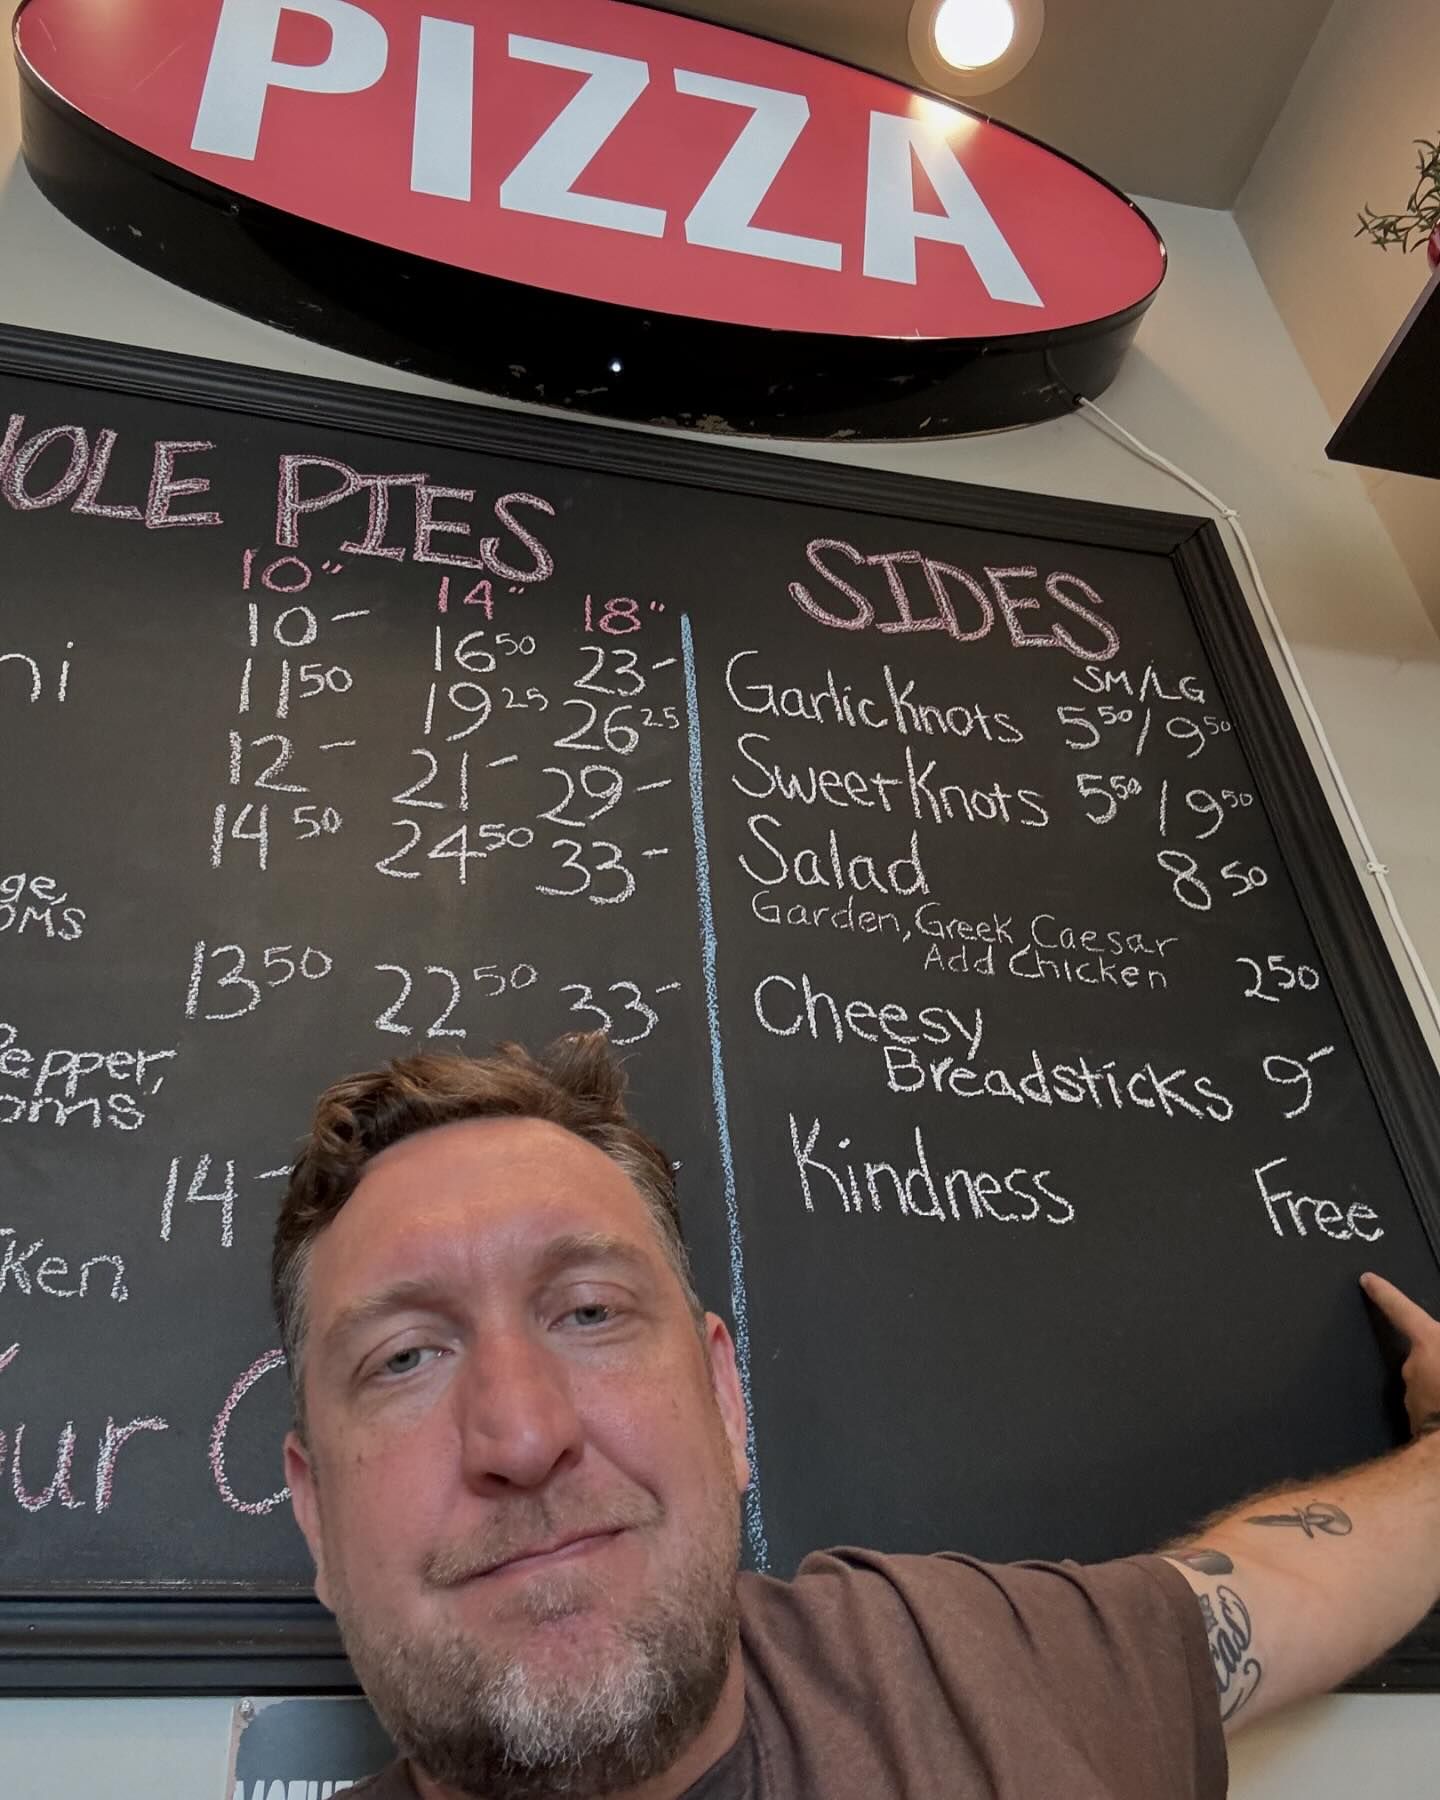 PIZZA
PIES
10" 14" 18"
10- 16 50 23-
11 50 19 25 26 25
12- 21- 29-
14 50 24 50 33-
13 50 22 50 33-
14-
SIDES
SM/LG
Garlic Knots 5 50 / 9 50
Sweet Knots 5 50 / 9 50
Salad 8 50
Garden, Greek, Caesar
Add Chicken 2 50
Cheesy
Breadsticks 9-
Kindness Free